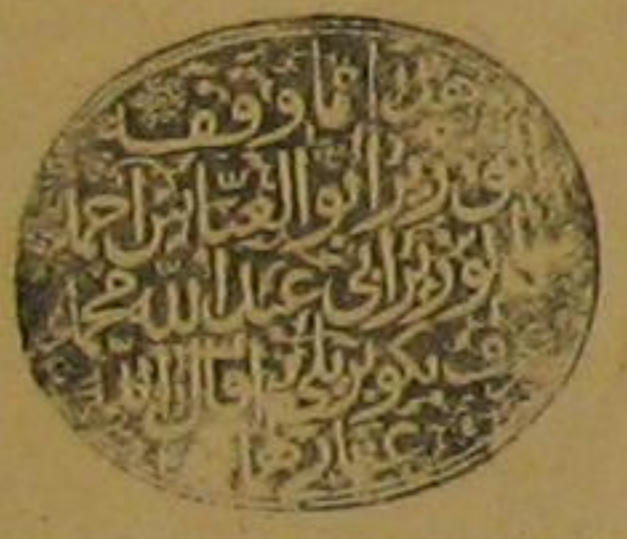 هذا مما وقفه
الوزير ابو العبّاس احمد
بن الوزير ابي عبد الله محمد
عرف بكوبريلي اقال الله
عثارهما